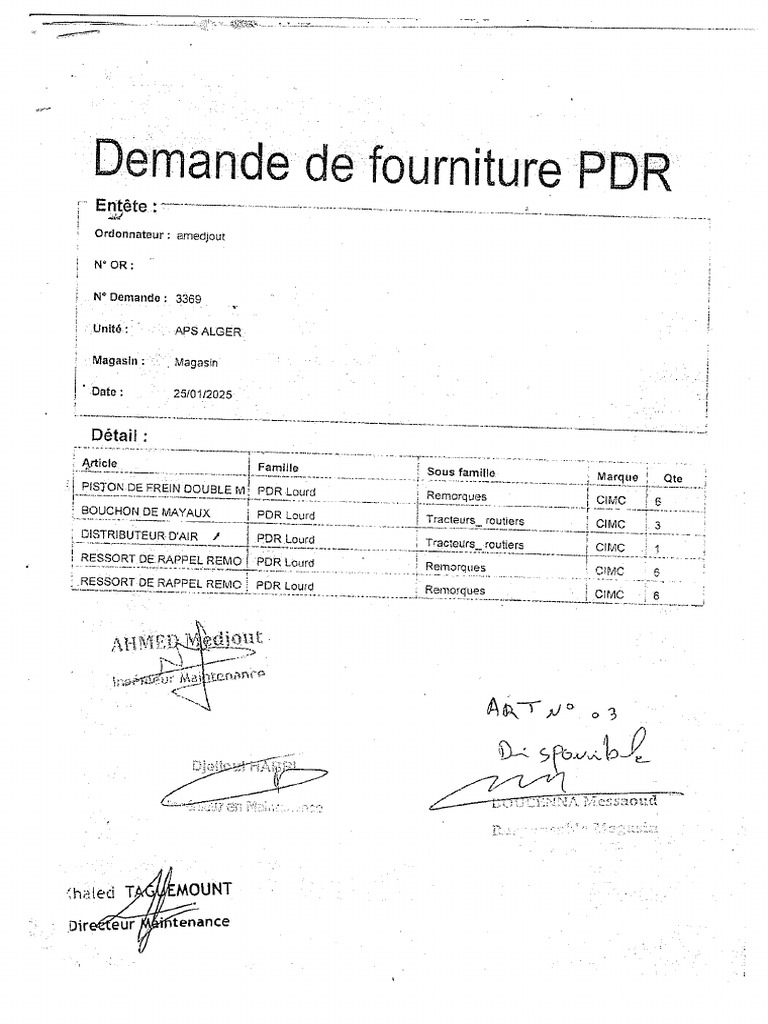 Demande de fourniture PDR
Entête :
Ordonnateur : amedjout
N° OR :
N° Demande : 3369
Unité : APS ALGER
Magasin : Magasin
Date : 25/01/2025
Détail :
Article Famille Sous famille Marque Qte
PISTON DE FREIN DOUBLE M PDR Lourd Remorques CIMC 6
BOUCHON DE MAYAUX PDR Lourd Tracteurs_ routiers CIMC 3
DISTRIBUTEUR D'AIR PDR Lourd Tracteurs_ routiers CIMC 1
RESSORT DE RAPPEL REMO PDR Lourd Remorques CIMC 6
RESSORT DE RAPPEL REMO PDR Lourd Remorques CIMC 6
AHMED Medjout
Ingénieur Maintenance
ART N° 03
Disponible
Djelloul
en Maintenance
BOUCENNA Messaoud
Responsable Magasin
Khaled TAGUEMOUNT
Directeur Maintenance